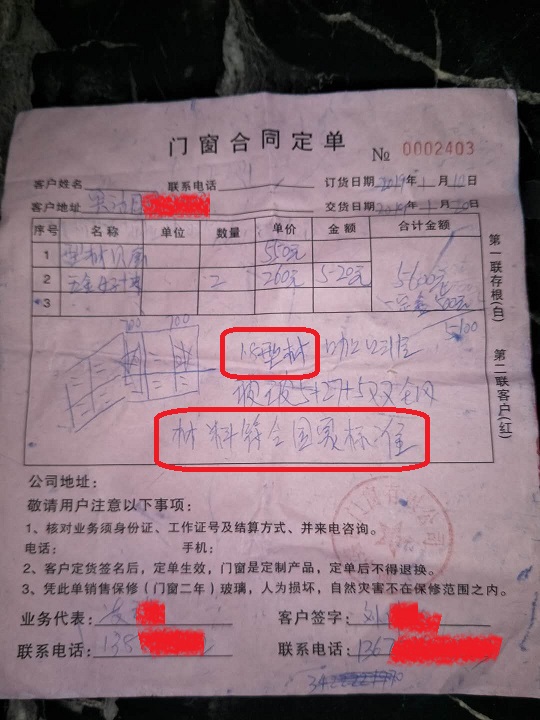 门窗合同定单
№ 0002403
客户姓名 联系电话 订货日期 2019年11月10日
客户地址 交货日期 2019年11月20日
序号 名称 单位 数量 单价 金额 合计金额
1 型材 550元
2 2 260元 520元 5600元
3 定金 500元
5100
第一联存根(白)
第二联客户(红)
100 100
1.8型材
玻璃5+27+5双
材料符合国家标准
公司地址:
敬请用户注意以下事项:
1、核对业务须身份证、工作证号及结算方式、并来电咨询。
电话: 手机:
2、客户定货签名后,定单生效,门窗是定制产品,定单后不得退换。
3、凭此单销售保修(门窗二年)玻璃,人为损坏,自然灾害不在保修范围之内。
业务代表: 客户签字: 刘
联系电话: 138 联系电话: 136